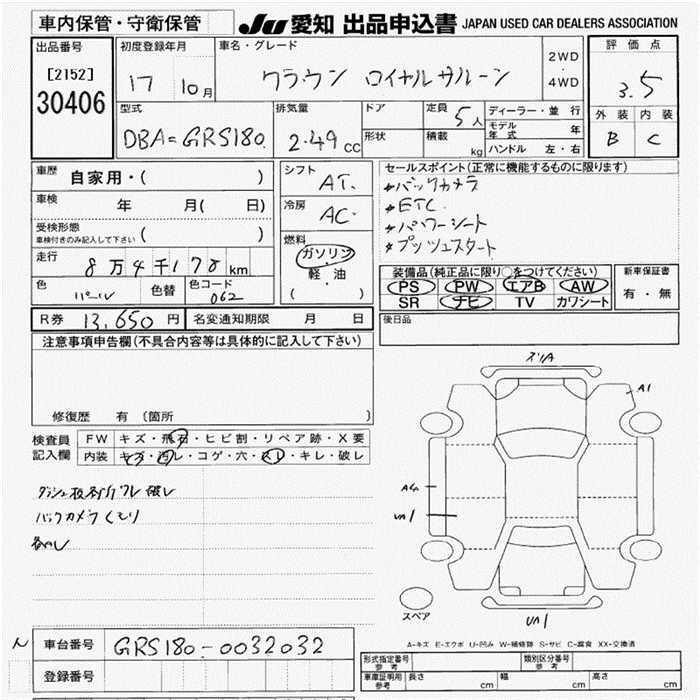 車内保管・守衛保管
JU 愛知 出品申込書 JAPAN USED CAR DEALERS ASSOCIATION
出品番号
[2152]
30406
初度登録年月
17 10月
車名・グレード
クラウン ロイヤルサルーン
2WD
4WD
評価点
3.5
外装 内装
B C
型式
DBA=GRS180
排気量
2.49cc
ドア
形状
定員 5人
積載 kg
ディーラー・並行
モデル年式 年
ハンドル 左・右
車歴 自家用・( )
車検 年 月( 日)
受検形態
車検付きのみ記入して下さい ( )
走行 8万4千178km
色 パール 色替 色コード 062
シフト AT.
冷房 AC.
燃料
ガソリン
軽・油
( )
セールスポイント(正常に機能するものに限ります)
バックカメラ
ETC.
パワーシート
プッシュスタート
装備品(純正品に限り○をつけてください)
PS PW エアB AW
SR ナビ TV カワシート
新車保証書
有・無
R券 13,650円 名変通知期限 月 日
後日品
注意事項申告欄(不具合内容等は具体的に記入して下さい)
修復歴 有 (箇所 )
検査員記入欄
FW キズ・飛石・ヒビ割・リペア跡・X要
内装 キズ・汚レ・コゲ・穴・スレ・キレ・破レ
バックカメラくもり
A1
A4
スペア
A-キズ E-エクボ U-凹み W-補修跡 S-サビ C-腐食 XX-交換済
車台番号 GRS180-0032032
登録番号
形式指定番号 参考
類別区分番号 参考
車庫証明用 参考 長さ cm 幅 cm 高さ cm